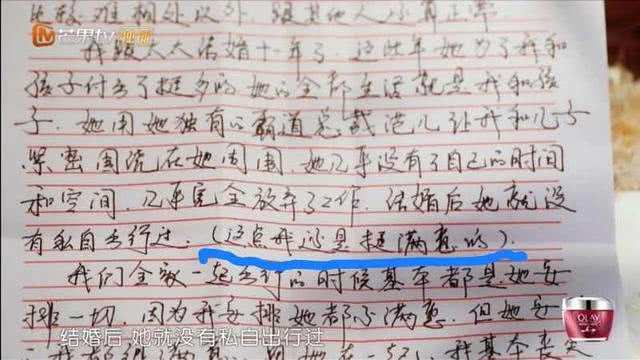 比较难相处以外，跟其他人还算正常
芒果TV 视频
我跟太太结婚十一年了，这些年她为了我和
孩子付出了挺多的她的全部生活就是我和孩
子，她用她独有的霸道总裁范儿让我和儿子
紧密围绕在她周围，她几乎没有了自己的时间
和空间，几乎完全放弃了工作，结婚后她就没
有私自出行过，（这点我还是挺满意的）。
我们全家一起出行的时候基本都是她安
排一切，因为我安排她都不满意，但她安
结婚后 她就没有私自出行过
OLAY